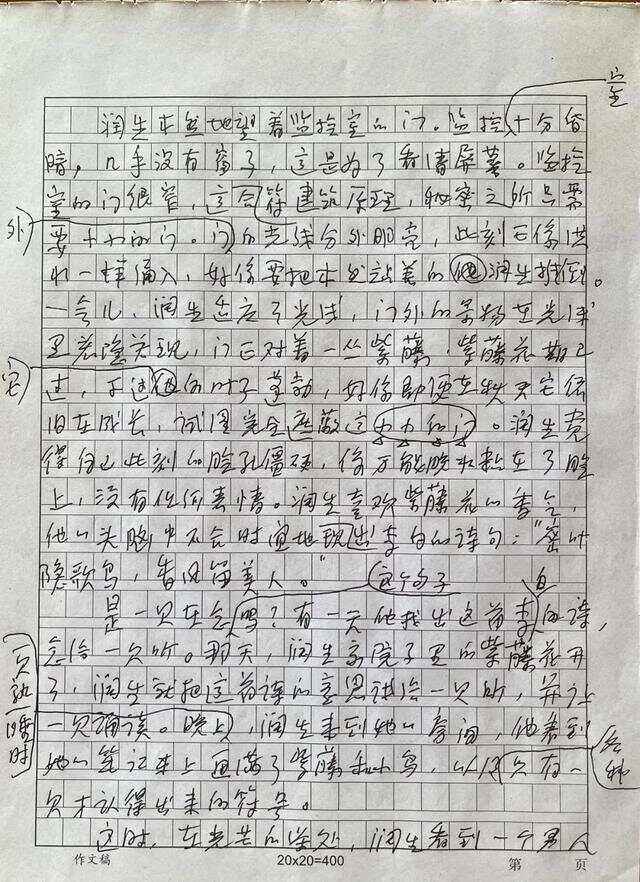 室
润生木然地望着监控室的门。监控十分昏
暗,几乎没有窗子,这是为了看清屏幕。监控
室的门很窄,这符建筑原理,秘密之所只需
外
要小小的门。门的光线分外明亮,此刻它像洪
水一样涌入,好像要把木然站着的他润生推倒。
一会儿,润生适应了光线,门外的景物在光线
里若隐若现,门正对着一丛紫藤,紫藤花期已
它
过,不过他的叶子蓬勃,好像即便在秋天它依
旧在成长,试图完全遮蔽这小小的门。润生觉
得自己此刻的脸孔僵硬,像万能胶水粘在了脸
上,没有任何表情。润生喜欢紫藤花的香气,
他的头脑中不合时宜地现出李白的诗句:“密叶
隐歌鸟,香风留美人。”
这个句子
白
是一只在念吗?有一天他找出这首李的诗,
念给一只听。那天,润生家院子里的紫藤花开
了,润生就把这首诗的意思讲给一只听,并让
一只诵读。晚上,润生来到她的房间,他看到
一只熟睡时
她的笔记本上画满了紫藤和小鸟,以及只有一
各种
只才认得出来的符号。
这时,在光芒的深处,润生看到一个男人
作文稿 20x20=400 第 页